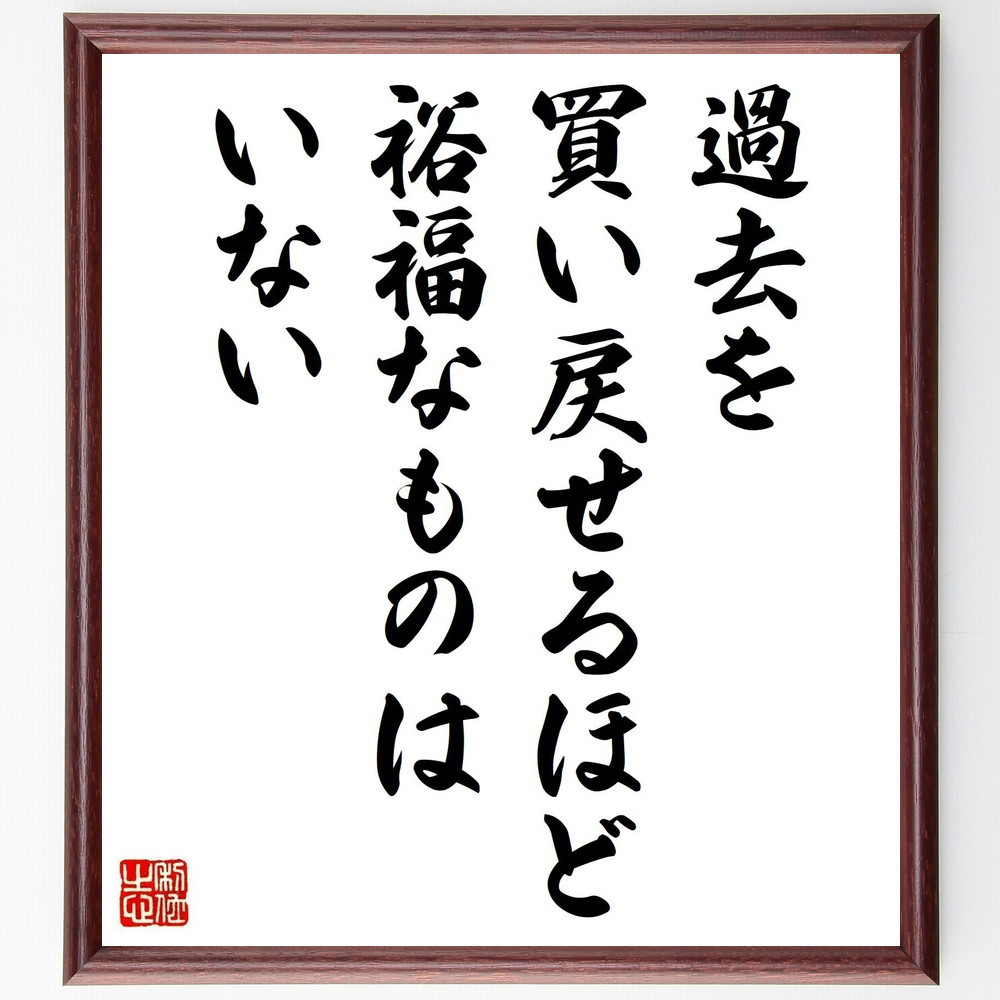 過去を
買い戻せるほど
裕福なものは
いない